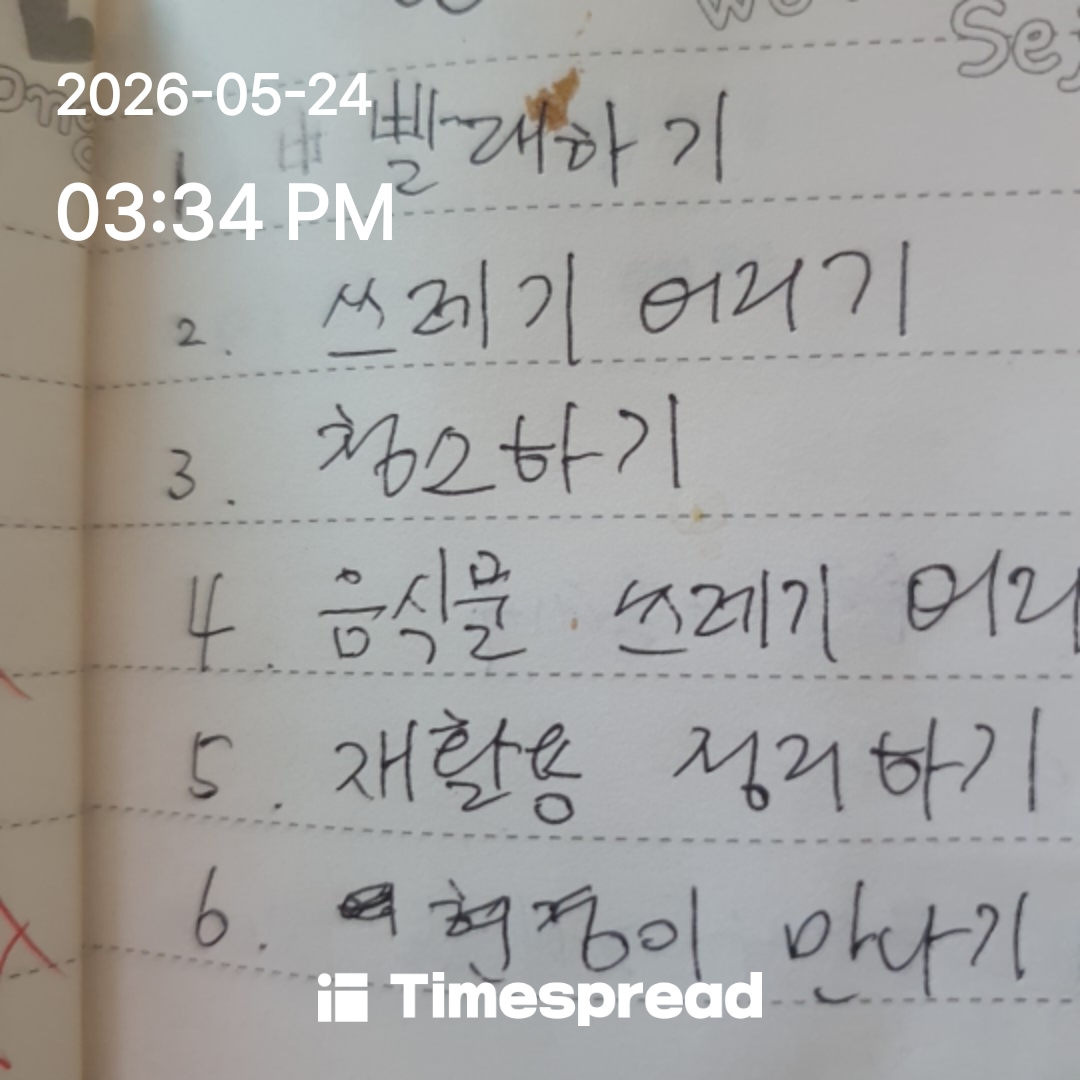 Sej
2026-05-24
빨래하기
03:34 PM
2. 쓰레기 어리기
3. 청소하기
4. 음식물 쓰레기 어리
5. 재활용 정리하기
6. 현정이 만나기
Timespread